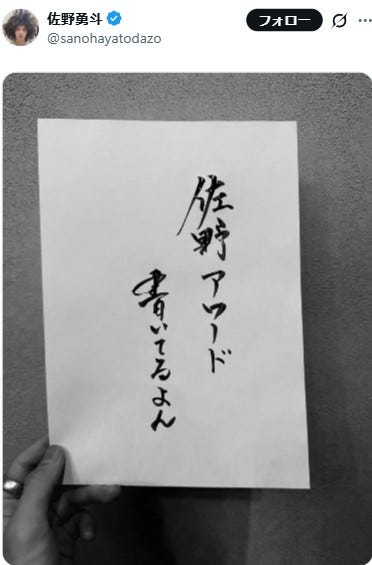 佐野勇斗
@sanohayatodazo
フォロー
佐野アワード
書いてるよん